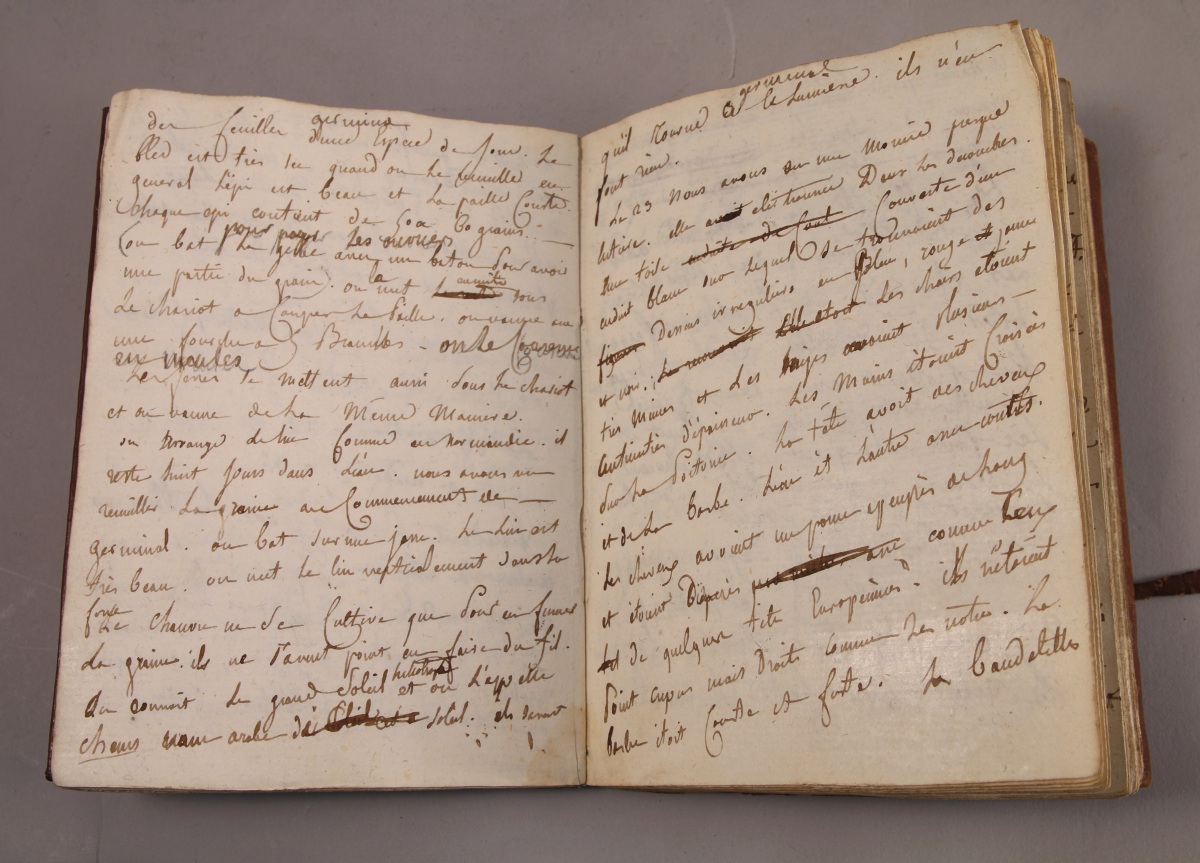 des feuilles germinal d'une espèce de four. Le
bled est très sec quand on le cueille en
general l'épi est beau et la paille Courte.
Chaque epi contient de 50 a 60 grains.
(on bat la avec un baton pour avoir
pour payer les ouvriers
une partie du grain. on met ensuite sous
le chariot a Couper la Paille. on vanne avec
une fourche a 5 Branches - on le Conserve
en meules
Les feves se mettent aussi sous le chariot
et on vanne de la Même Maniere.
on arrange le lin Comme en Normandie. il
reste huit jours dans l'eau. nous avons vu
recueillir la graine au Commencement de
germinal. on bat sur une Le lin est
très beau. on met le lin verticalement dans la
fosse
Le Chanvre ne se Cultive que pour en fumer
la graine. ils ne savent point en faire du fil.
On connoit le grand Soleil et on l'appelle
chems nom arabe du soleil. ils savent
qu'il tourne a la lumiere. ils n'en
germinal
font rien.
Le 23 Nous avons vu une Momie presque
entiere. elle avoit eté trouvée Dans les decombres.
Une toile enduite de Couverte d'un
enduit blanc sur lequel se trouvoient des
figures Dessins irreguliers en Bleu, rouge et jaune
et noir. Elle etoit Les chairs etoient
très minces et les linges avoient plusieurs
centimetres d'épaisseur. Les Mains étoient Croisées
sur la Poitrine. La tête avoit des cheveux
et de la barbe. L'un et l'autre assez courts.
les cheveux avoient un pouce apeuprès de long
et étoient comme ceux
de quelques tête Européennes. ils n'étoient
Point crepus mais Droits comme les notres. La
barbe étoit Courte et forte. La